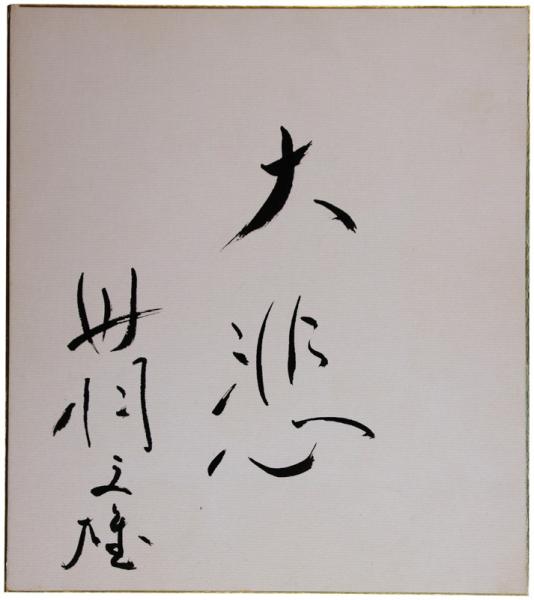 大悲
丹羽文雄